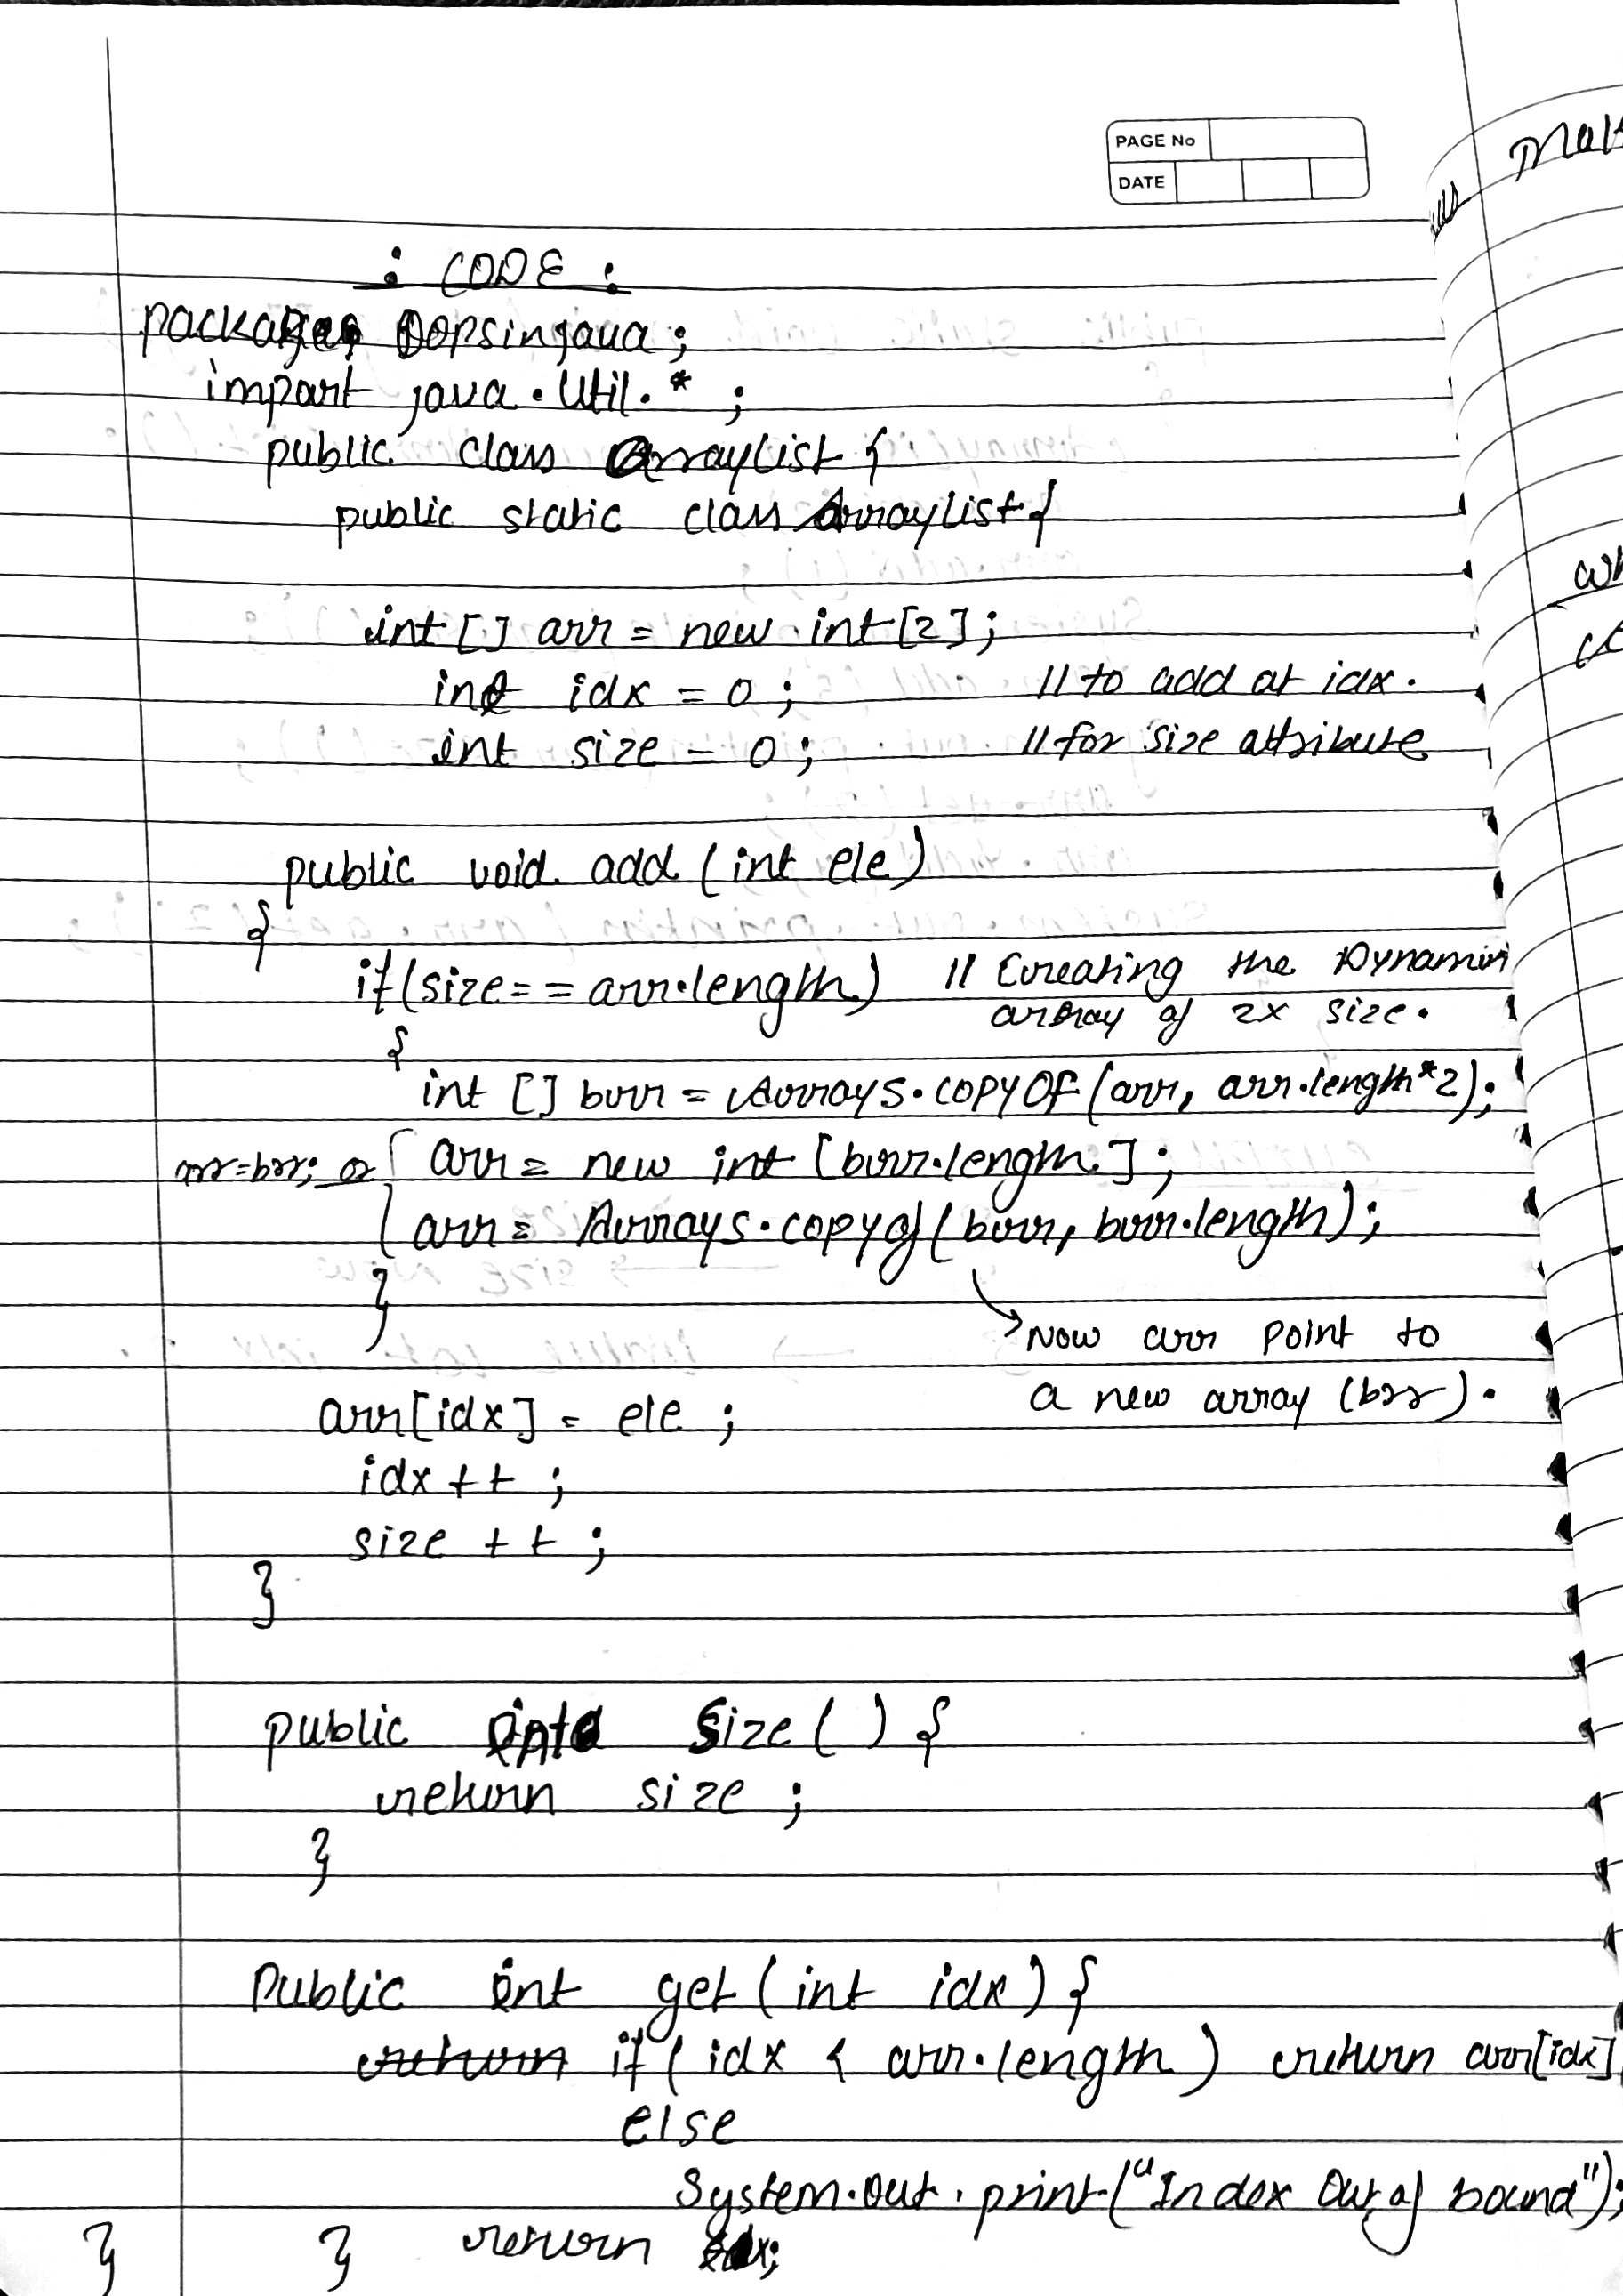 PAGE No
DATE
: CODE :
package Oopsinjava;
import java.util.* ;
public class Arraylist {
public static class Arraylist {
int [] arr = new int [2];
int idx = 0 ; // to add at idx.
int size = 0 ; // for size attribute
public void add (int ele)
{
if (size == arr.length) // Creating the Dynamic
array of 2x size.
{
int [] brr = Arrays.copyOf (arr, arr.length*2);
arr=brr; or arr = new int [brr.length];
arr = Arrays.copyof (brr, brr.length);
}
Now arr point to
a new array (brr).
arr[idx] = ele ;
idx ++ ;
size ++ ;
}
public int size ( ) {
return size ;
}
Public int get (int idx) {
return if ( idx < arr.length ) return arr[idx]
else
System.out.print("Index Out of bound");
} } return